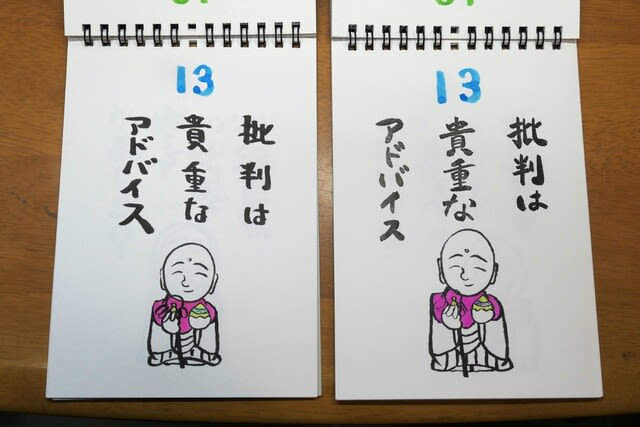 13
批判は
貴重な
アドバイス
13
批判は
貴重な
アドバイス